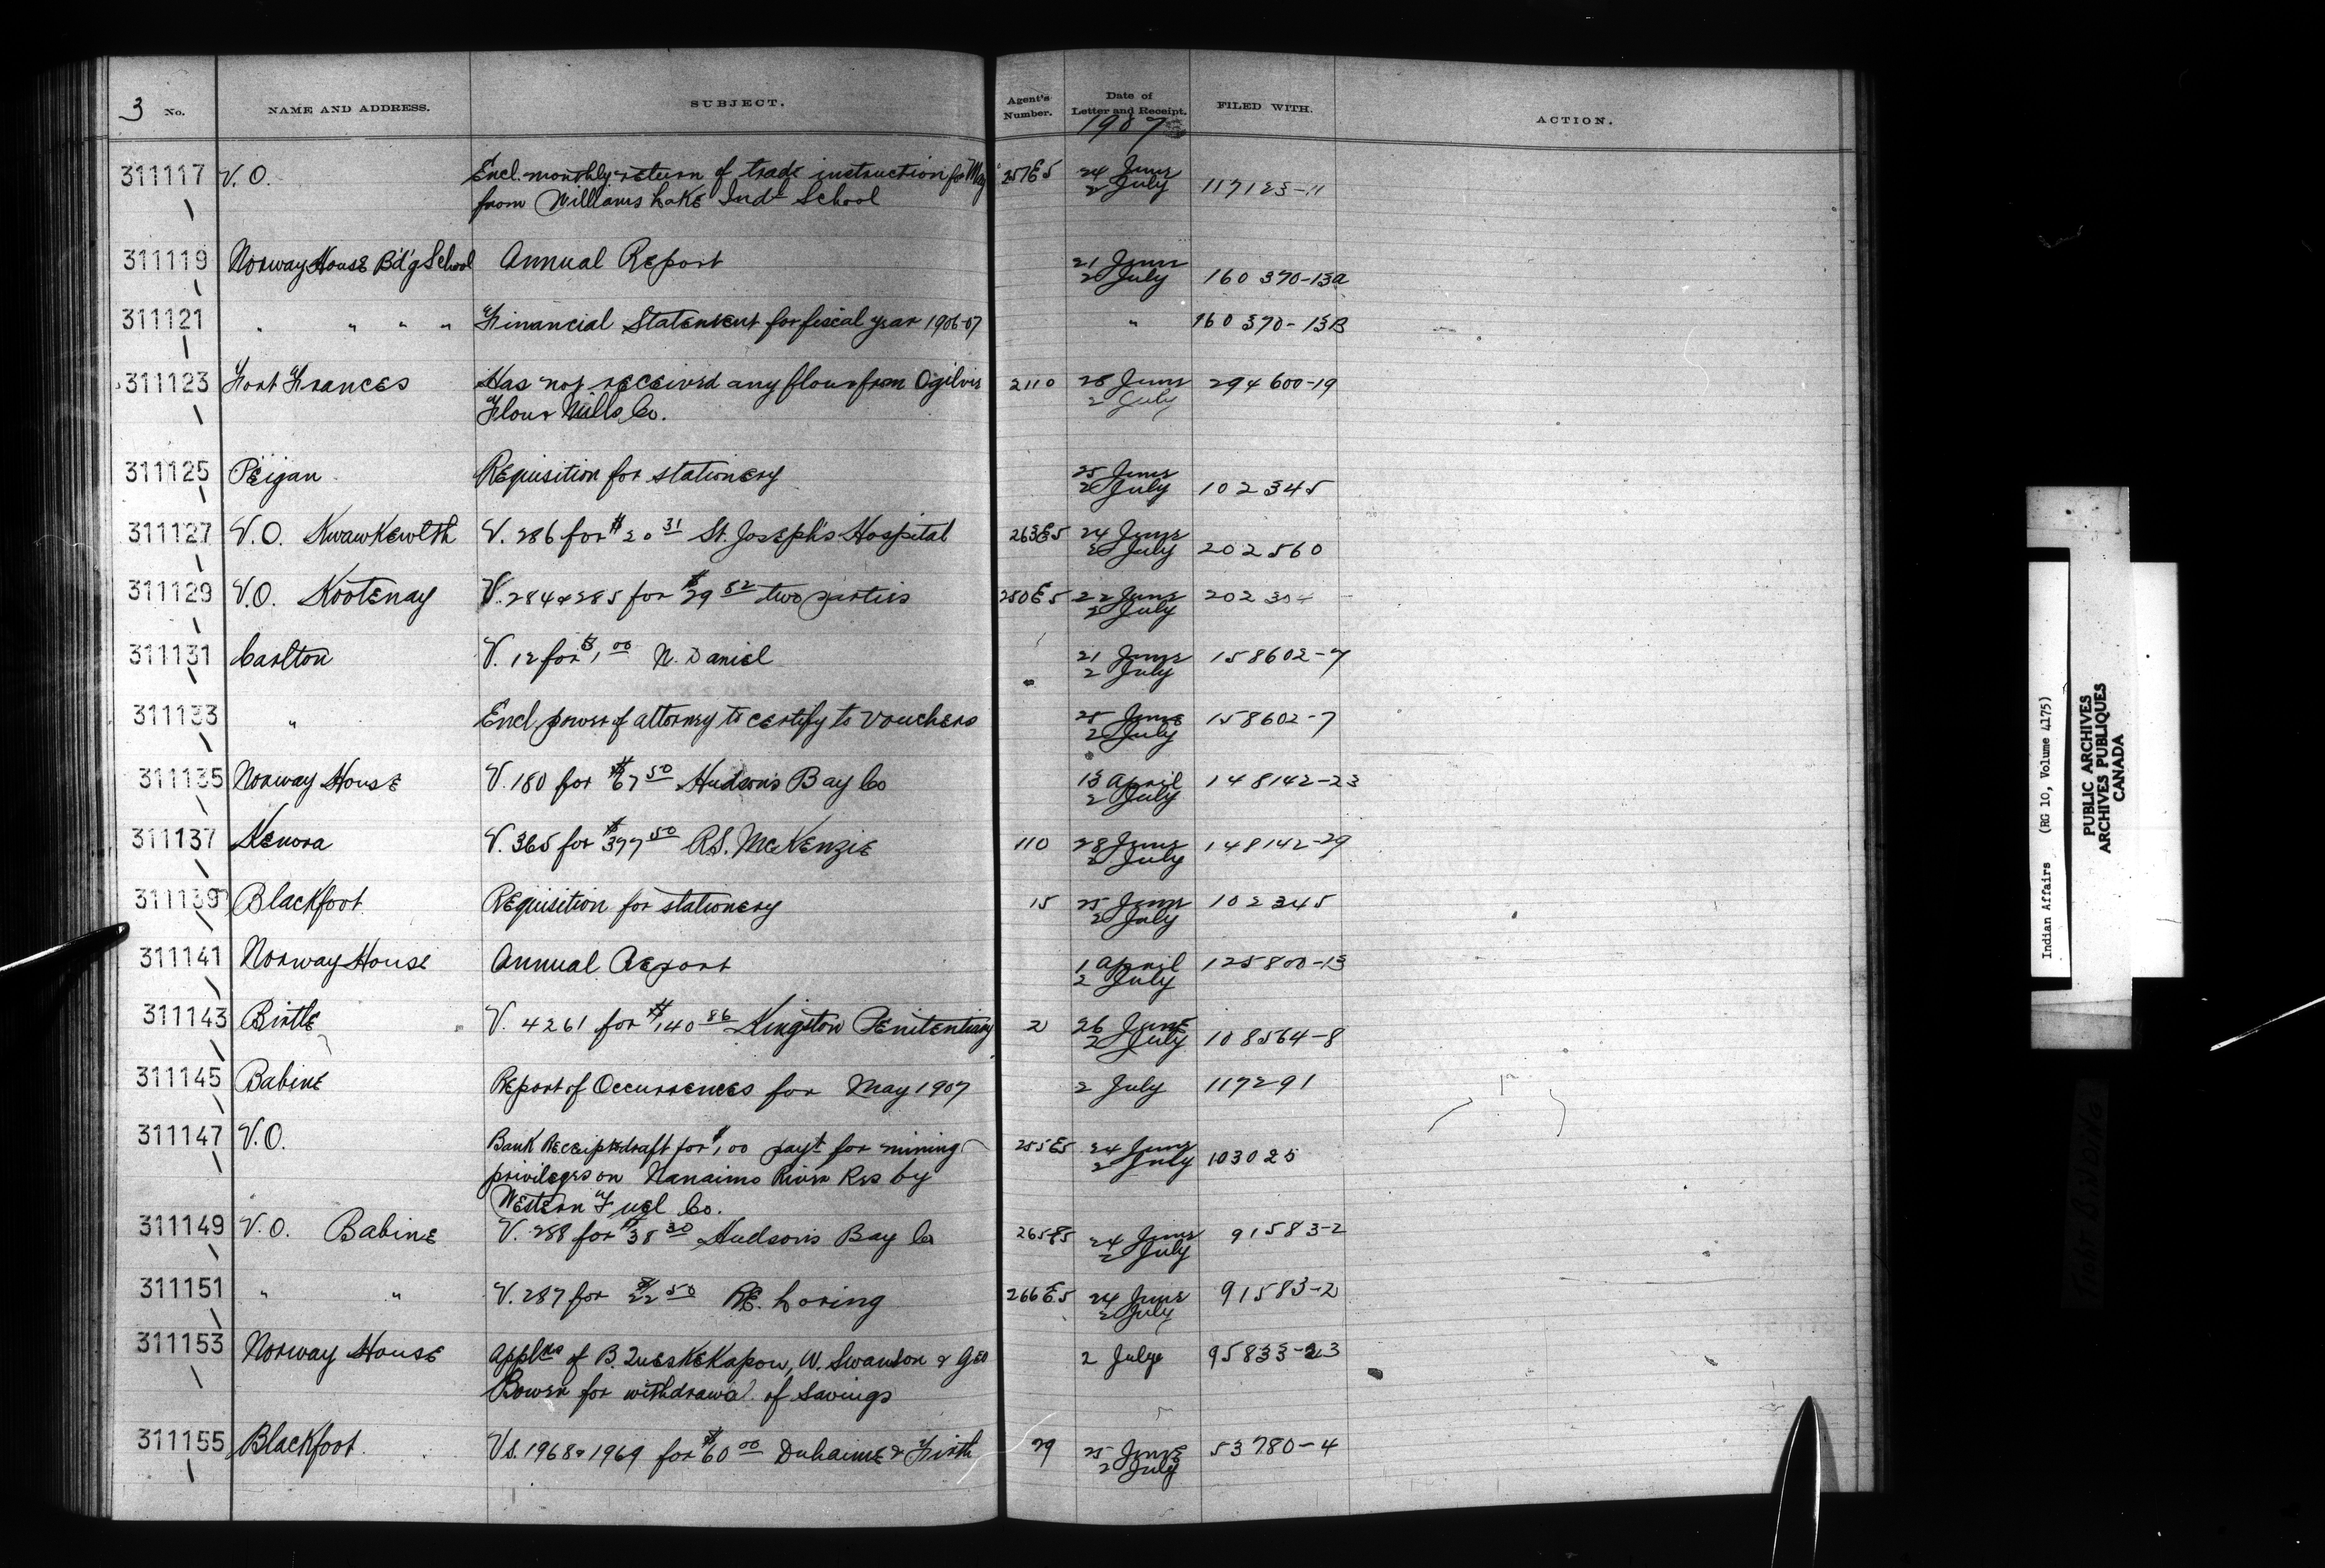 3 No. NAME AND ADDRESS. SUBJECT. Agent's Number. Date of Letter and Receipt. FILED WITH. ACTION.
1907
311117 V.O. Encl. monthly return of trade instruction for May 257E5 24 June 117123-11
from Williams Lake Indl School 2 July
311119 Norway House B'd'g School Annual Report 21 June
2 July 160370-13a
311121 " " " " Financial Statement for fiscal year 1906-07 " 160370-13B
311123 Fort Frances Has not received any flour from Ogilvie 2110 28 June 294600-19
Flour Mills Co. 2 July
311125 Peigan Requisition for stationery 25 June
2 July 102345
311127 V.O. Kwawkewlth V. 286 for $20 31 St. Joseph's Hospital 263E5 24 June
2 July 202560
311129 V.O. Kootenay V. 284 & 285 for $29 82 two parties 250E5 22 June 202304
2 July
311131 Carlton V. 12 for $1 00 N. Daniel 21 June 158602-7
2 July
311133 " Encl power of attorney to certify to vouchers 25 June 158602-7
2 July
311135 Norway House V. 180 for $67 50 Hudson's Bay Co 13 April 148142-23
2 July
311137 Kenora V. 365 for $397 50 R.S. McKenzie 110 28 June 148142-29
2 July
311139 Blackfoot Requisition for stationery 15 25 June 102345
2 July
311141 Norway House Annual Report 1 April 125800-13
2 July
311143 Birtle V. 4261 for $140 86 Kingston Penitentiary 2 26 June
2 July 108564-8
311145 Babine Report of Occurrences for May 1907 2 July 117291
311147 V.O. Bank Receipt & draft for $1,00 payt for mining 255E5 24 June
privileges on Nanaimo River Res by 2 July 103025
Western Fuel Co.
311149 V.O. Babine V. 288 for $38 30 Hudson's Bay Co 265E5 24 June 91583-2
2 July
311151 " " V. 287 for $22 50 R.E. Loring 266E5 24 June 91583-2
2 July
311153 Norway House Applns of B. Queskekapow, W. Swanson & Geo 2 July 95833-23
Bower for withdrawal of savings
311155 Blackfoot Vs. 1968 & 1969 for $60 00 Duhaime & Firth 29 25 June 53780-4
2 July
Indian Affairs (RG 10, Volume 4175)
PUBLIC ARCHIVES
ARCHIVES PUBLIQUES
CANADA